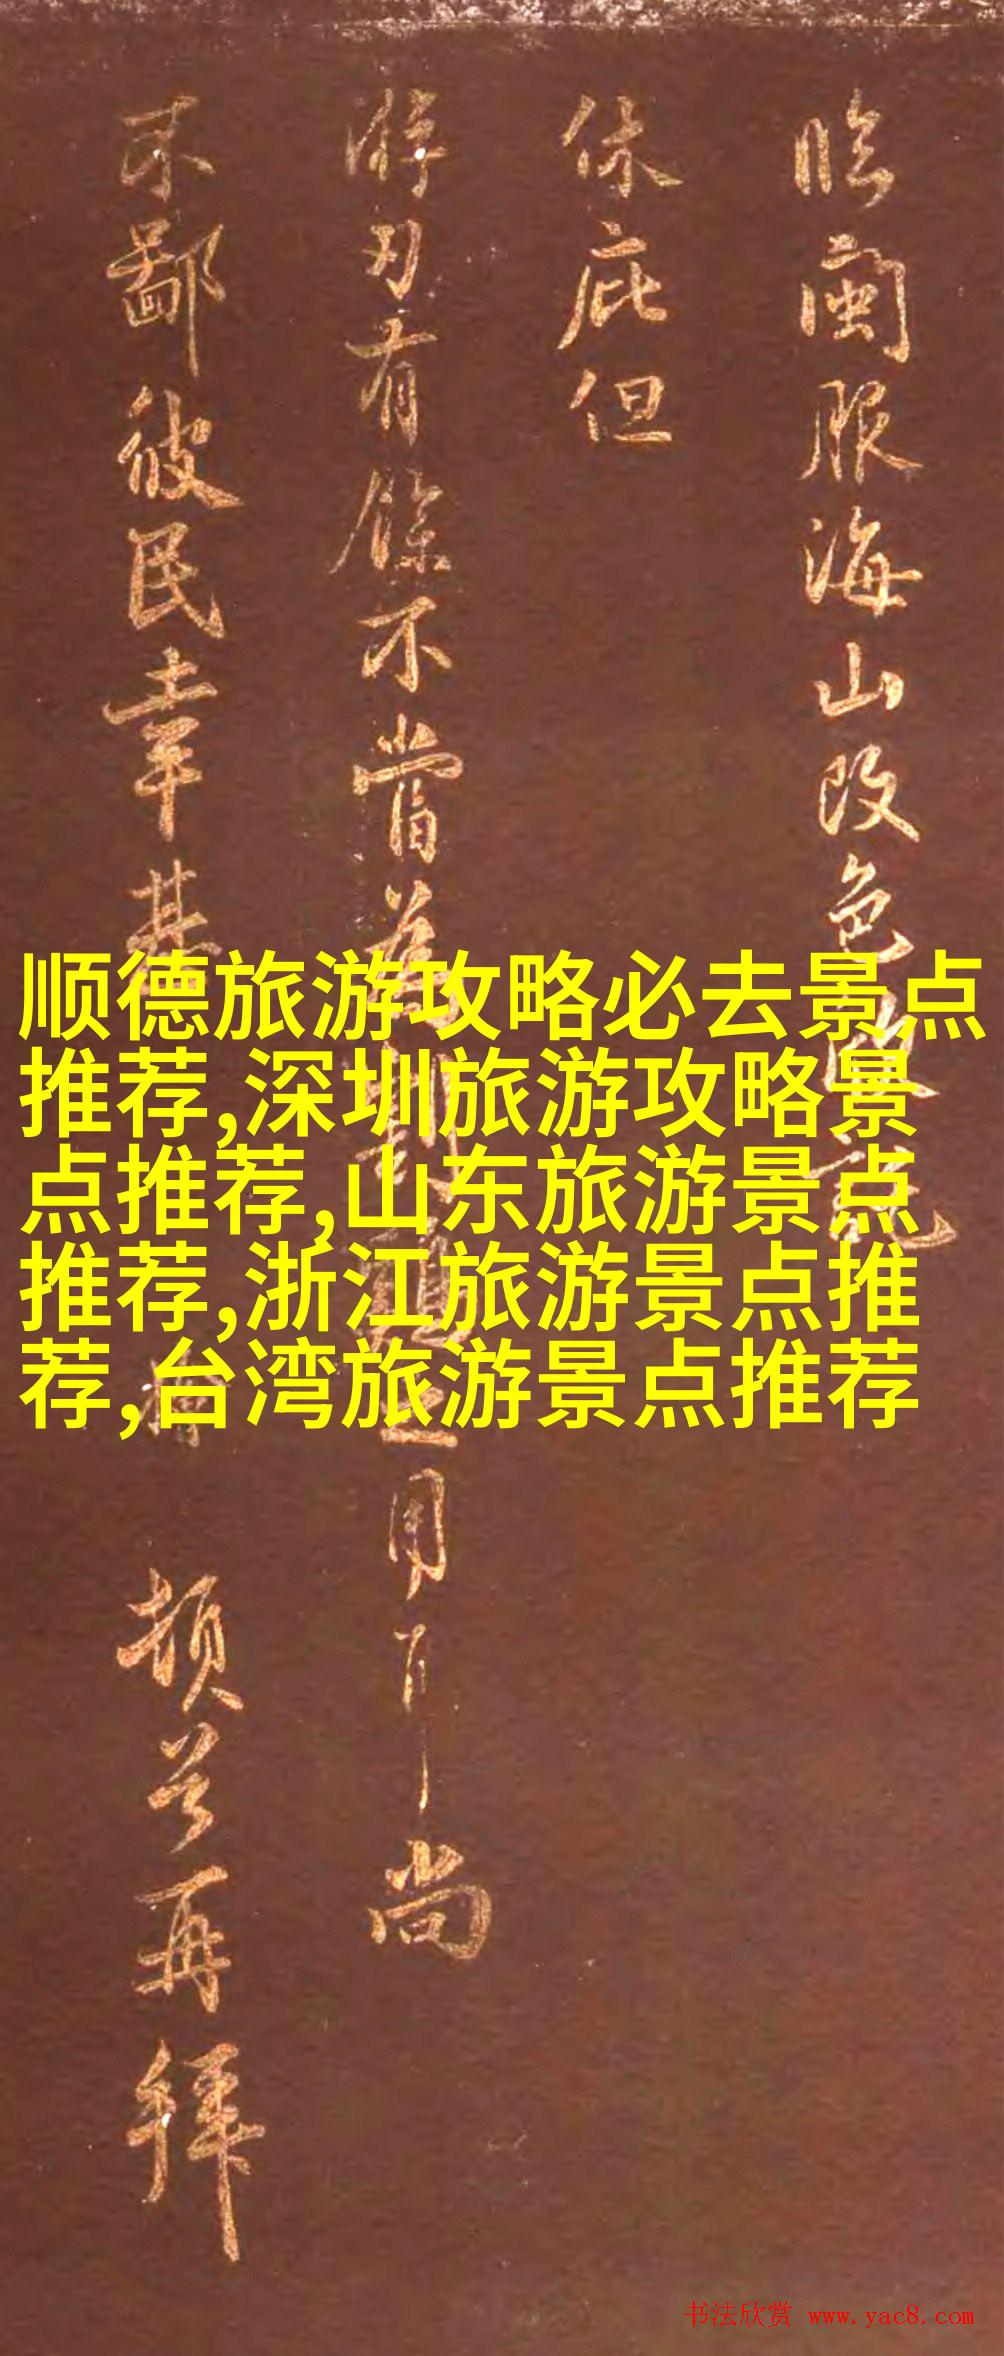 臨閩服海山改色
休庇但
游刃有餘不嘗為
用
尚
不鄙彼民幸甚
頓首再拜
顺德旅游攻略必去景点
推荐,深圳旅游攻略景
点推荐,山东旅游景点
推荐,浙江旅游景点推
荐,台湾旅游景点推荐
书法欣赏 www.yac8.com